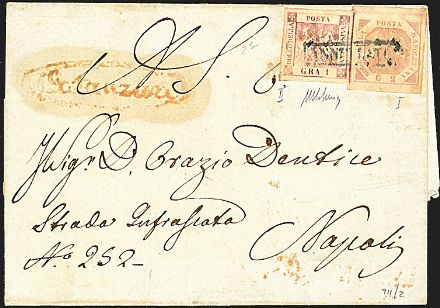 POSTA
POSTA
GRA. 1
G 2
ANNULLATO
Catanzaro
A S.
Sigr. D. Orazio Dentice
Strada Infrascata
No. 252
Napoli
II
I
24/2